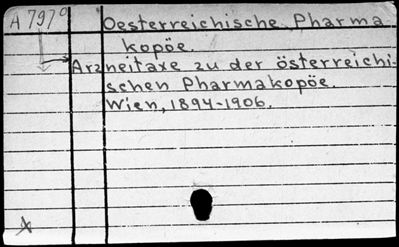 A 797°
Oesterreichische Pharma
kopöe.
Arzneitaxe zu der österreichi-
schen Pharmakopöe.
Wien, 1894-1906.